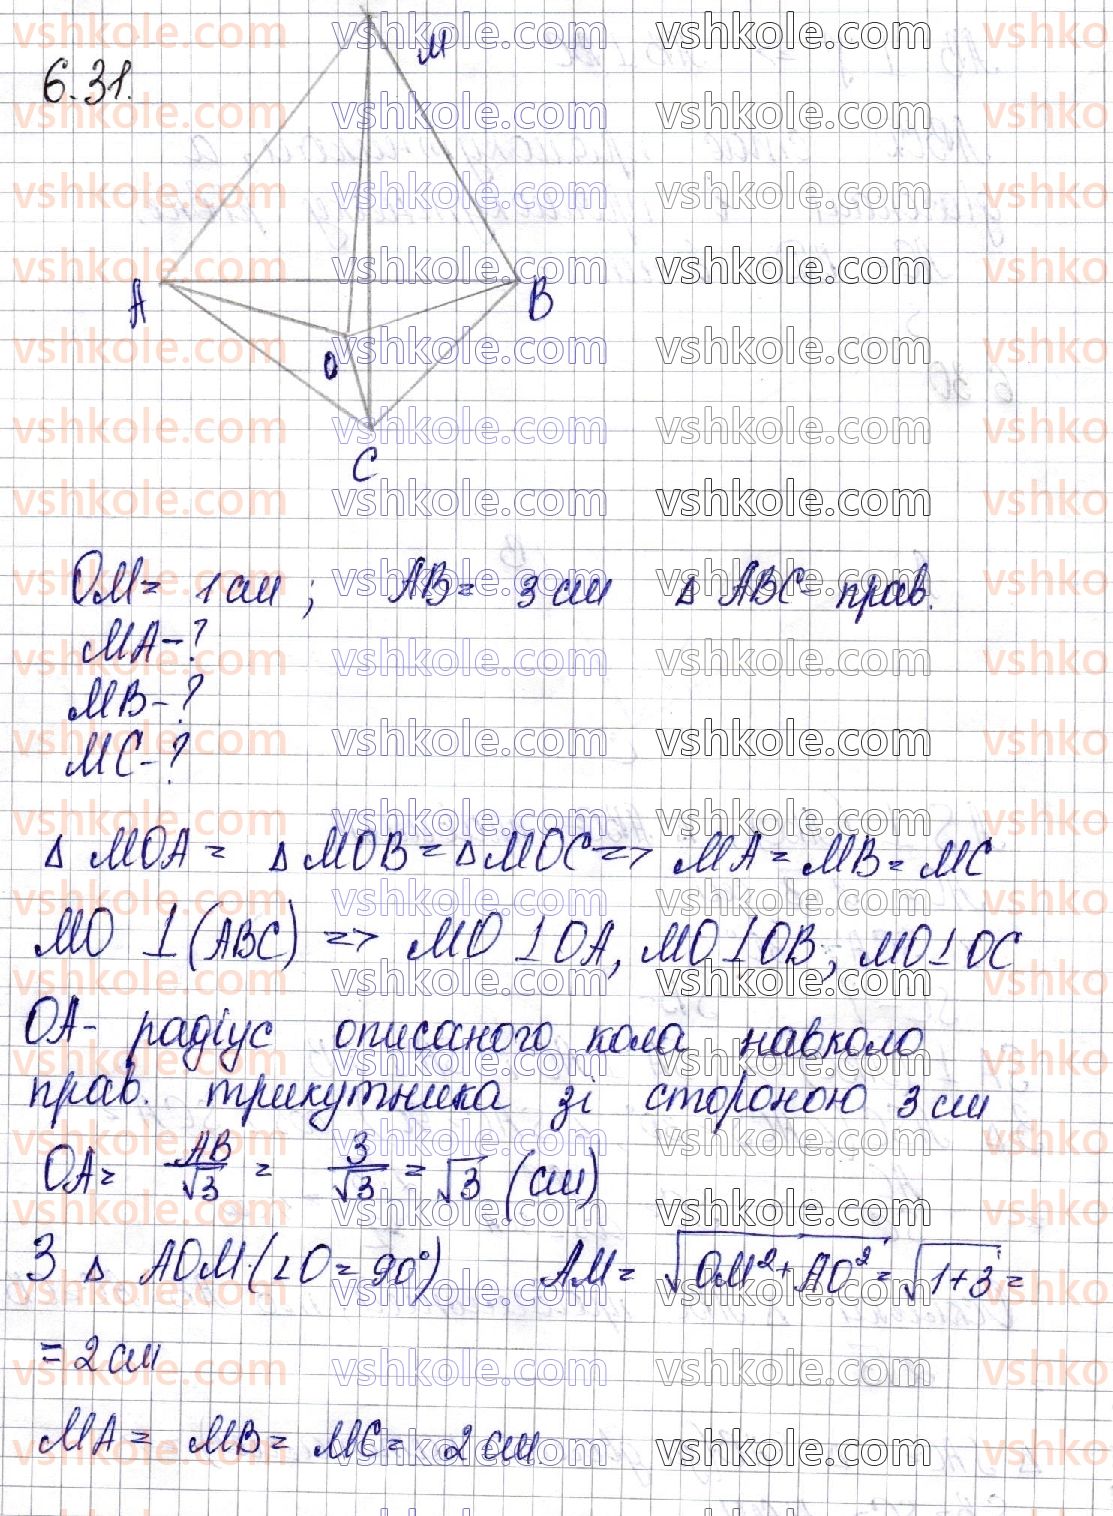 6.31.
M
A
B
O
C
OM = 1 см; AB = 3 см ∆ ABC - прав.
MA - ?
MB - ?
MC - ?
∆ MOA = ∆ MOB = ∆ MOC => MA = MB = MC
MO ⊥ (ABC) => MO ⊥ OA, MO ⊥ OB; MO ⊥ OC
OA - радіус описаного кола навколо
прав. трикутника зі стороною 3 см
OA = AB/√3 = 3/√3 = √3 (см)
З ∆ AOM (∠O = 90°) AM = √(OM² + AO²) = √(1+3) =
= 2 см
MA = MB = MC = 2 см.
vshkole.com